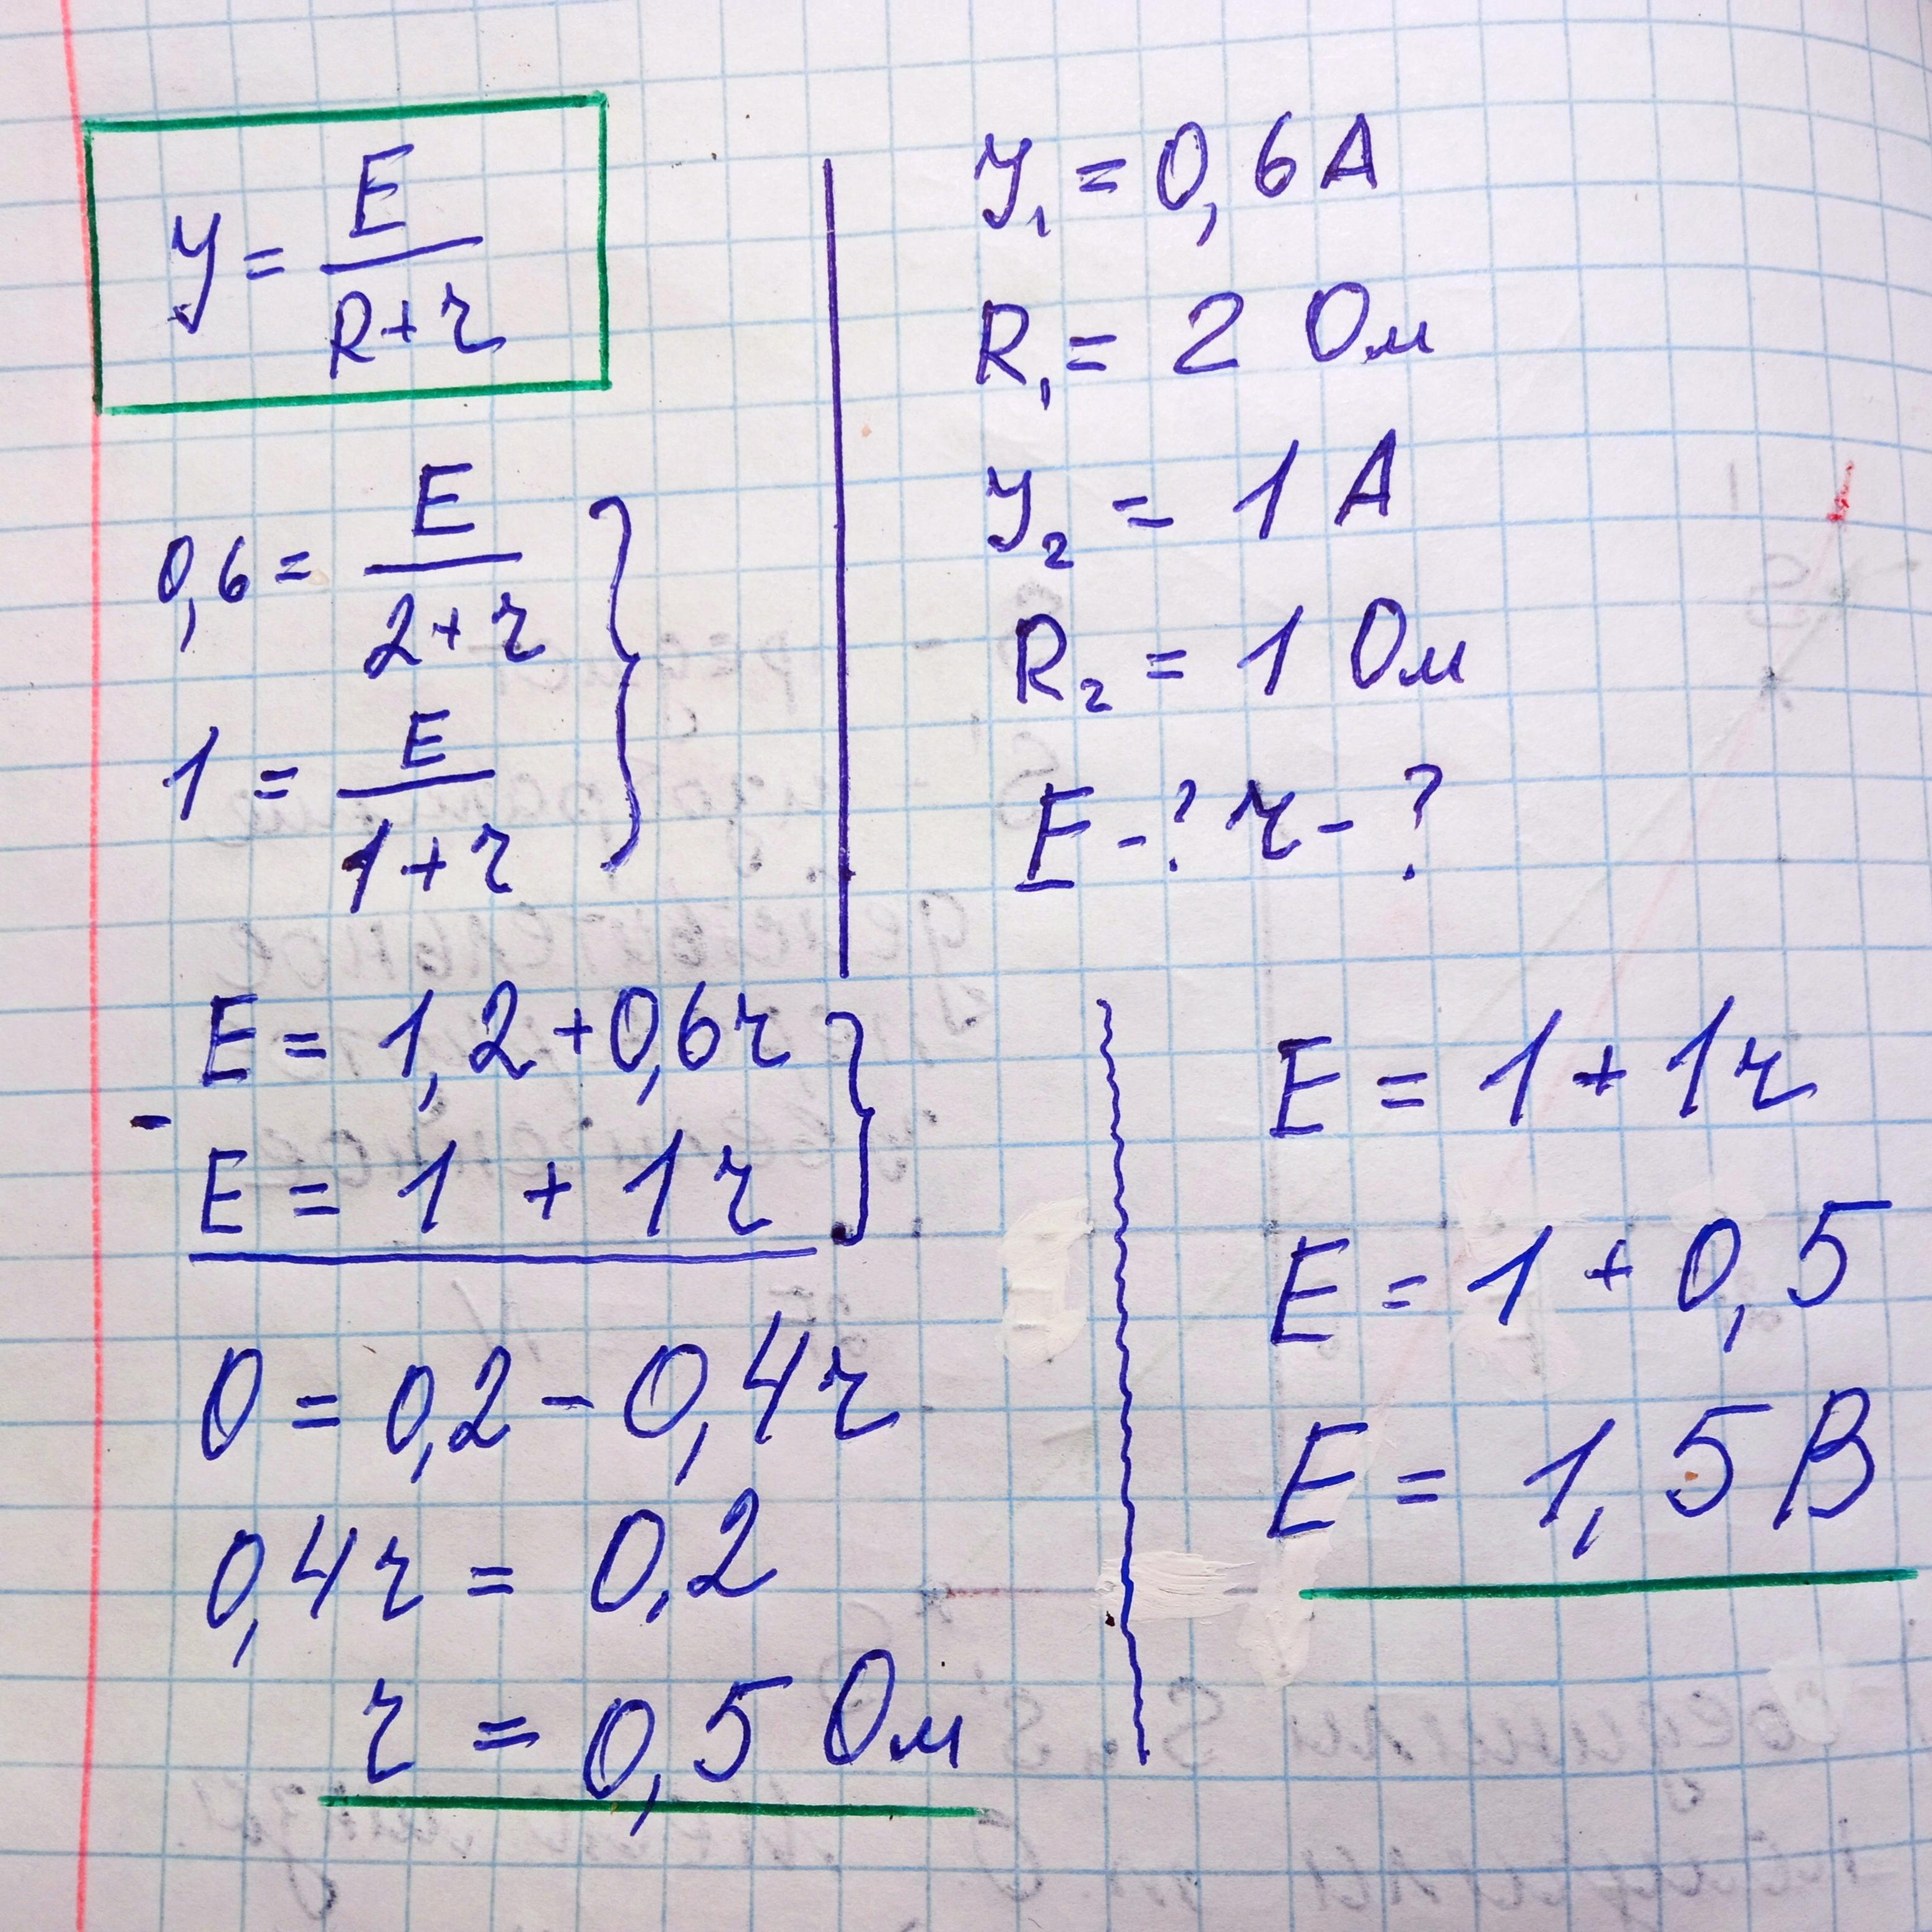 У = E / (R + r)
0,6 = E / (2 + r)
1 = E / (1 + r)
У₁ = 0,6 А
R₁ = 2 Ом
У₂ = 1 А
R₂ = 1 Ом
E - ? r - ?
E = 1,2 + 0,6r
-
E = 1 + 1r
0 = 0,2 - 0,4r
0,4r = 0.2
r = 0,5 Ом
E = 1 + 1r
E = 1 + 0,5
E = 1,5 В